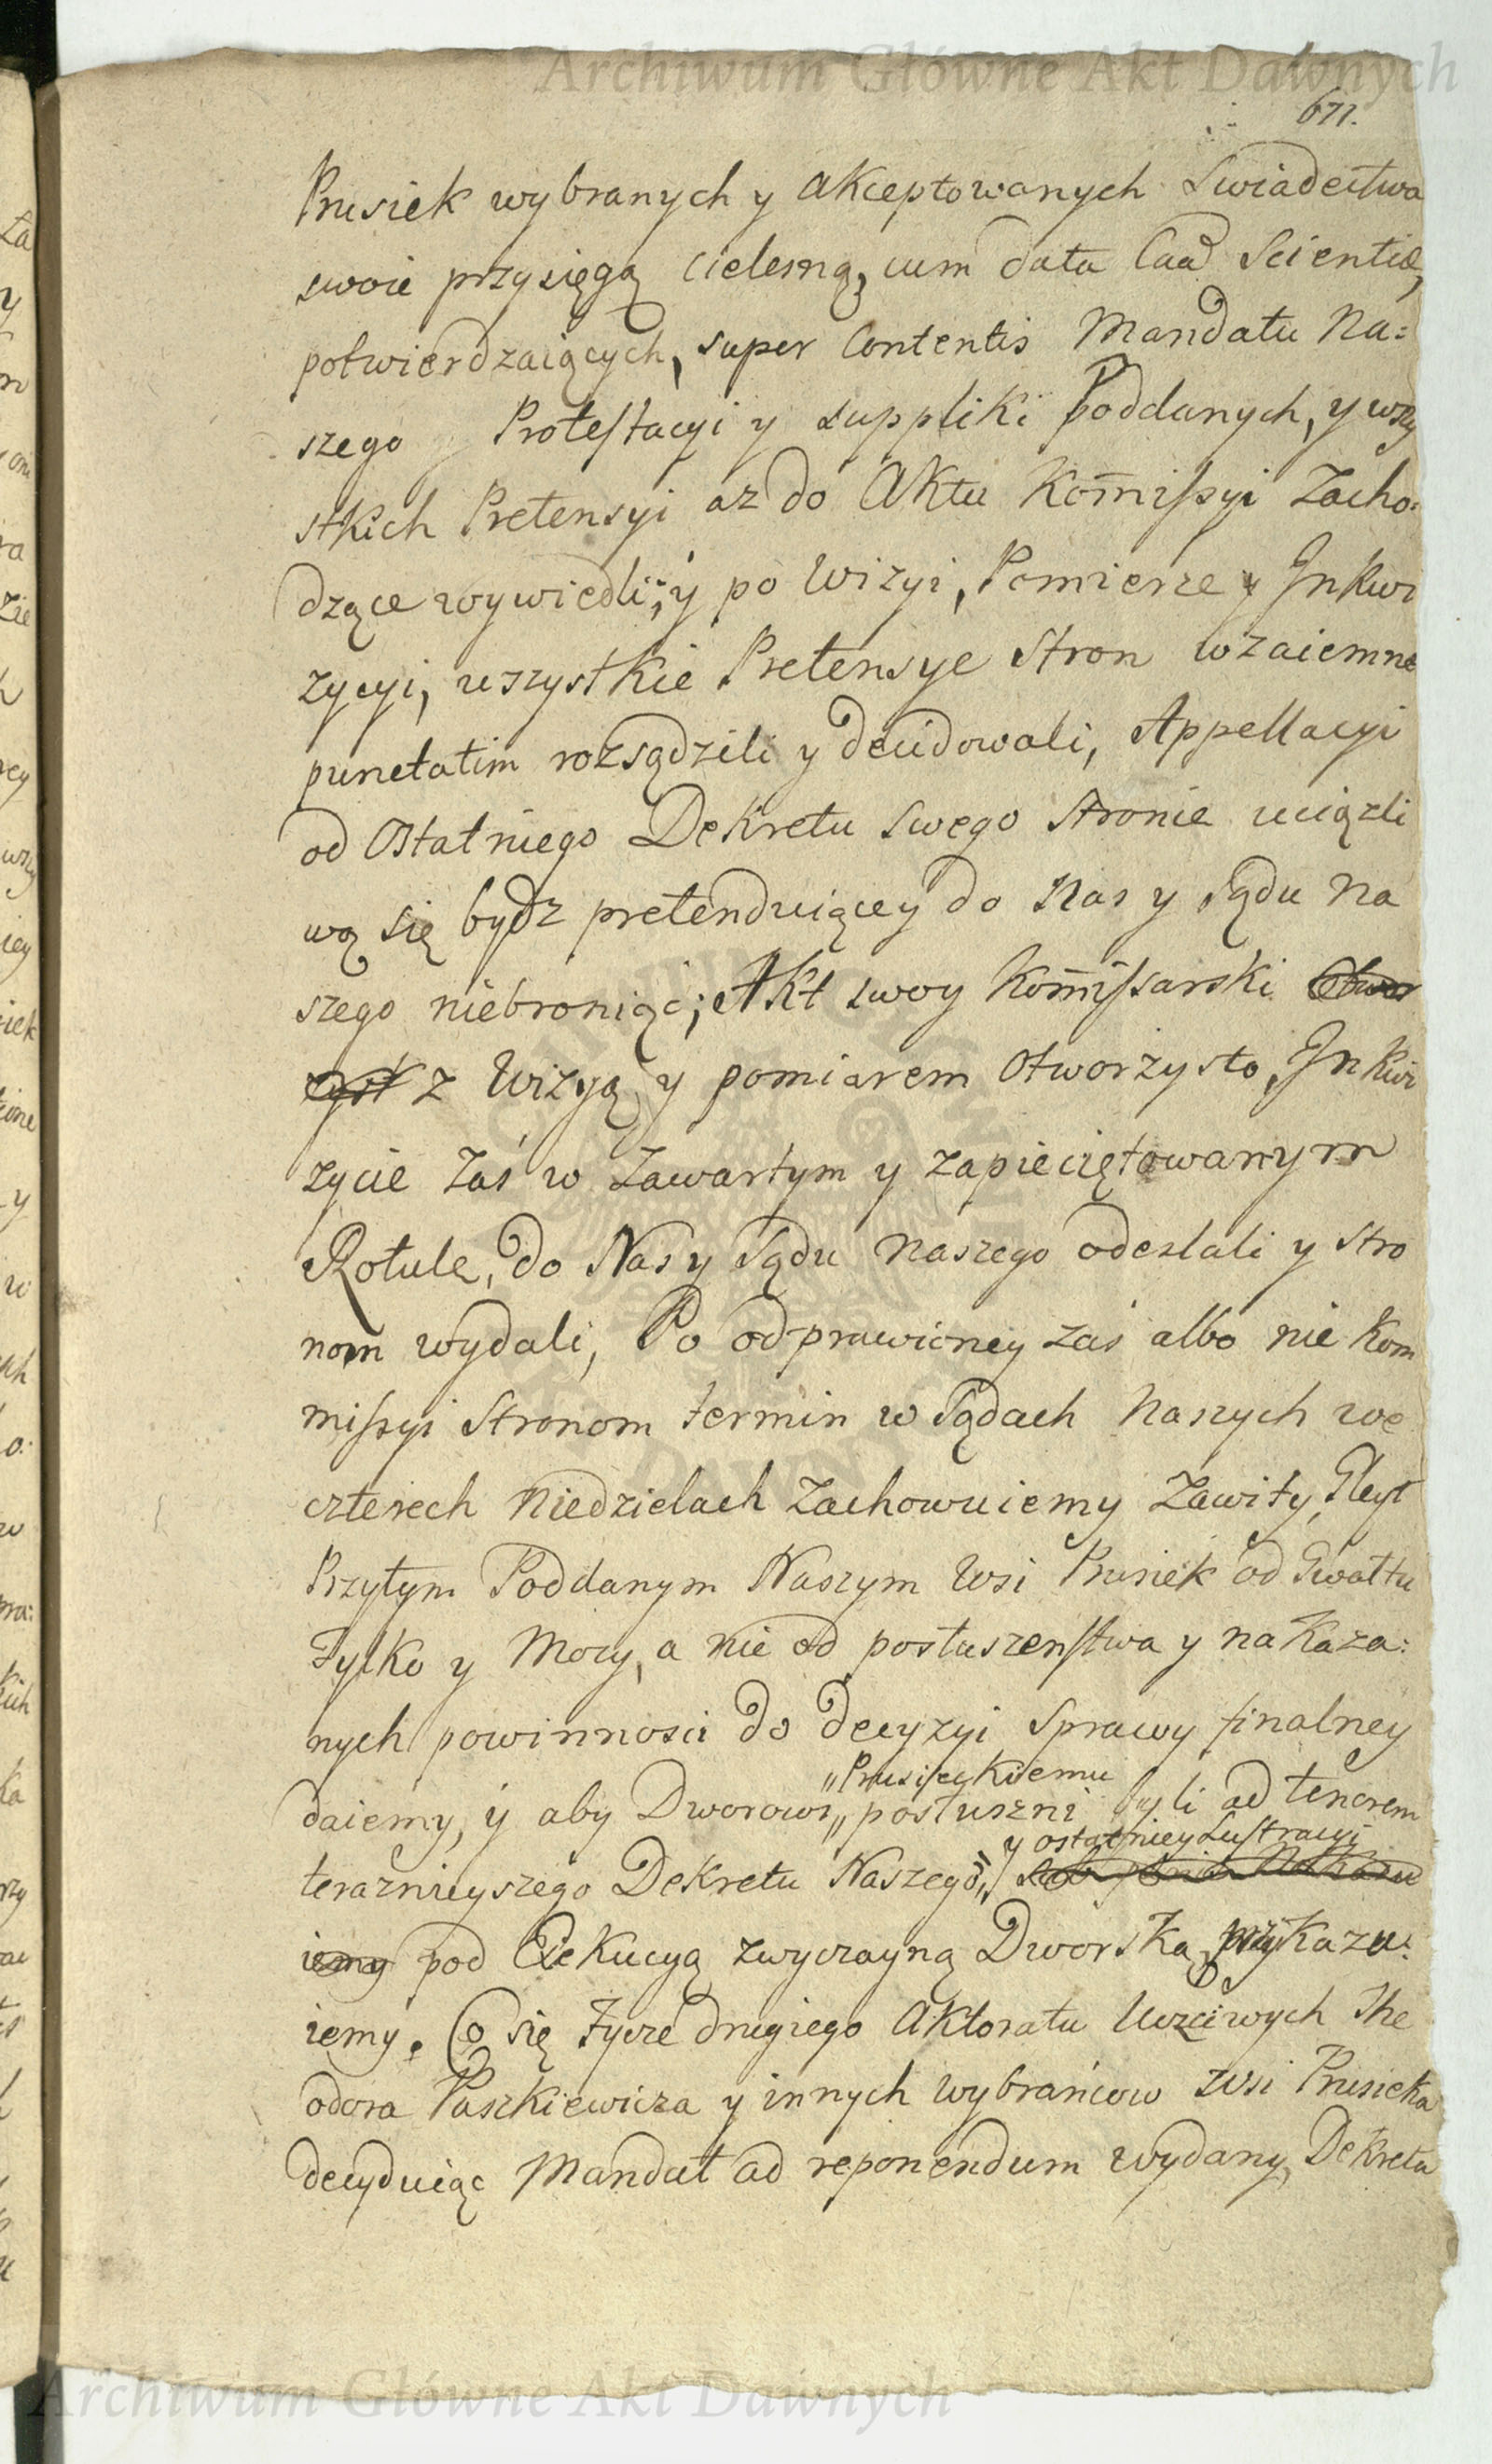 Archiwum Główne Akt Dawnych
671.
Prusiek wybranych y akceptowanych Swiadectwa
swoie przysięgą cielesną, cum data Caa Scientiæ,
potwierdzaiących, super Contentis Mandatu Na:
szego Protestacyi y suppliki Poddanych, y wszy
stkich Pretensyi az do Aktu Kommissyi Zacho:
dzące wywiedli; y po Wizyi, Pomierze y Inkwi
zycyi, wszystkie Pretensye Stron wzaiemne
punctatim rozsądzili y decidowali, Appellacyi
od Ostatniego Dekretu swego Stronie uciązli
wą się bydz pretenduiącey do Nas y Sądu Na
szego niebroniąc; Akt swoy Kommissarski Otwor
zyst z Wizyą y pomiarem Otworzysto, Inkwi
zycie Zaś w Zawartym y zapieciętowanym
Rotule, do Nas y Sądu Naszego odeslali y stro
nom wydali, Po odprawioney zas albo nie Kom
missyi Stronom termin w Sądach Naszych we
czterech Niedzielach Zachowuiemy Zawity, Gleyt
Przytym Poddanym Naszym Wsi Prusiek od Gwałtu
Tylko y Mocy, a nie od posłuszeństwa y nakaza:
nych powinnosci do decyzyi Sprawy finalney
"Prusieckiemu
daiemy, y aby Dworowi" posłuszni byli ad tenorem
y ostatniey Lustracyi
teraznieyszego Dekretu Naszego,
iemy pod Exekucyą zwyczayną Dworską przykazu:
iemy. Co się tycze drugiego Aktoratu Uczciwych The
odora Paszkiewicza y innych wybrańcow zwsi Prusieka
decyduiąc Mandat ad reponendum wydany, Dekreta
Archiwum Główne Akt Dawnych